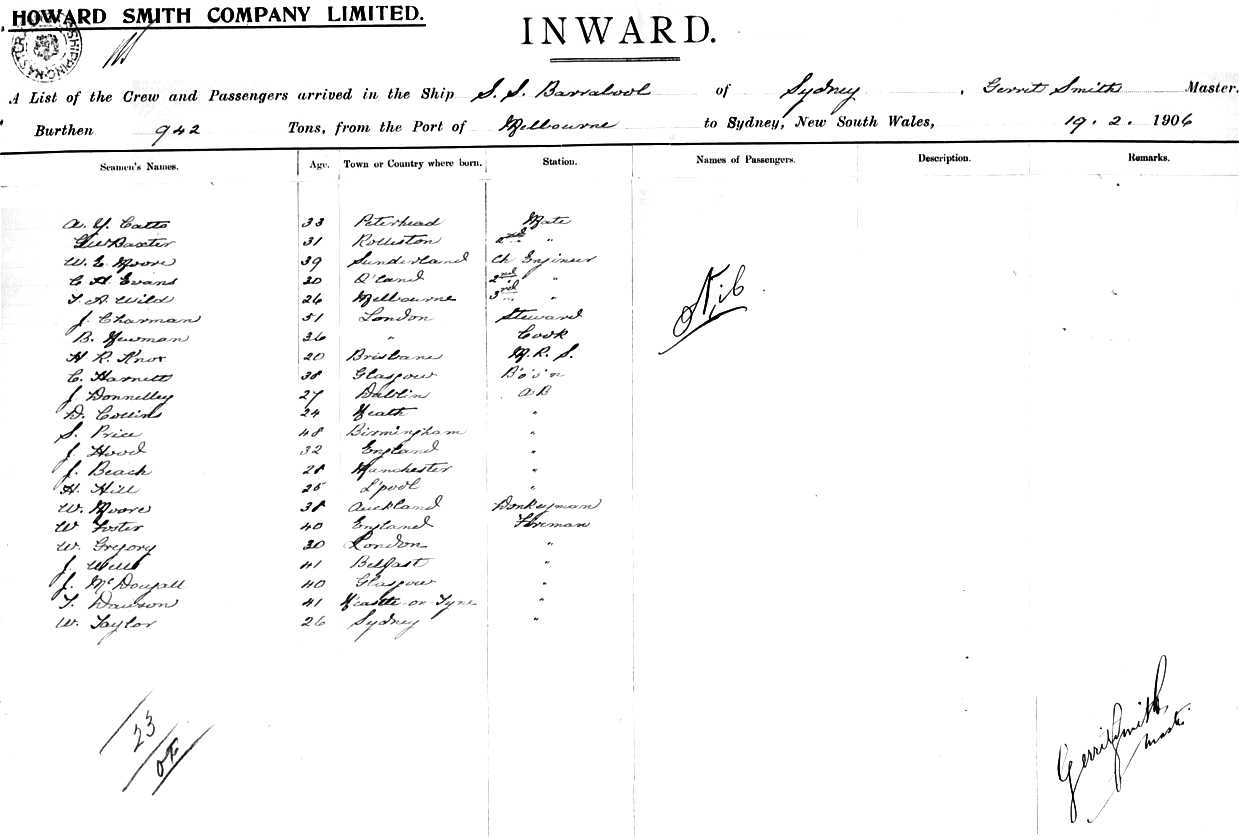 HOWARD SMITH COMPANY LIMITED.
INWARD.
A List of the Crew and Passengers arrived in the Ship S. S. Barrabool of Sydney, Gerrit Smith Master.
Burthen 942 Tons, from the Port of Melbourne to Sydney, New South Wales, 19. 2. 1906
Seamen's Names. Age. Town or Country where born. Station. Names of Passengers. Description. Remarks.
A. Y. Catto 33 Peterhead Mate
G W Baxter 31 Rolleston 2nd "
W. E. Moore 39 Sunderland Ch Engineer
C A Evans 30 Q'land 2nd "
T. A. Wild 26 Melbourne 3rd "
J. Charman 51 London Steward
B. Newman 36 " Cook
H R. Knox 20 Brisbane M. R. S.
C. Harnett 38 Glasgow B'o's'n
J. Donnelley 27 Dublin A B
D. Collins 24 Meath "
S. Price 48 Birmingham "
J. Hood 32 England "
J. Beach 28 Manchester "
H. Hill 25 L'pool "
W. Moore 38 Auckland Donkeyman
W Foster 40 England Fireman
W. Gregory 30 London "
J. Wells 41 Belfast "
J. McDougall 40 Glasgow "
T. Dawson 41 N'castle on Tyne "
W. Taylor 26 Sydney "
Nil
23
Gerrit Smith
Master